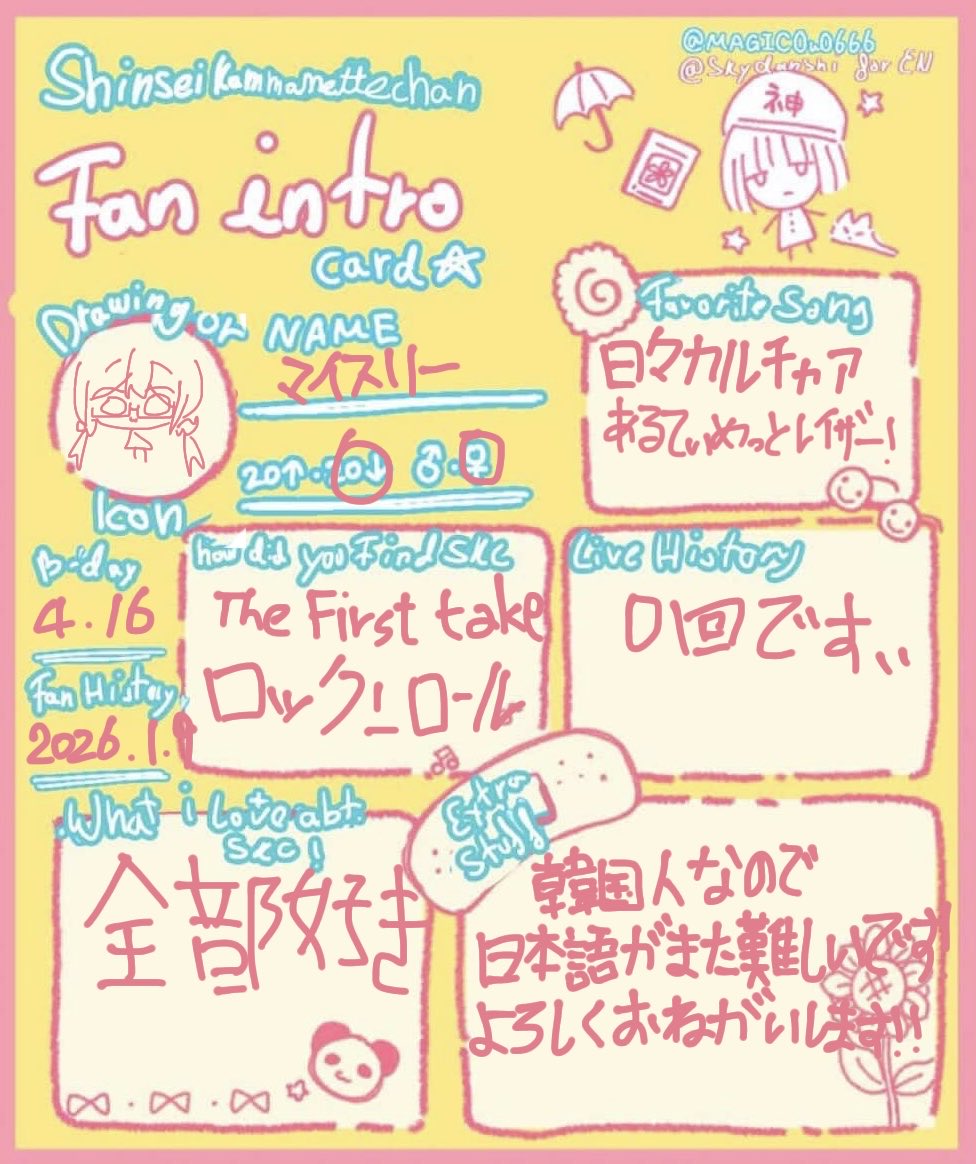 @MAGIC0u0666
@Skydanshi for EN
Shinsei Kammanettechan
Fan intro
card☆
神
Drawing or
Icon
NAME
マイスリー
20↑・20↓ ♂・♀
Favorite Song
日々カルチャア
あるてぃめっとレイザー!
B-day
4.16
Fan History
2026.1.9
how did you Find SKC
The First take
ロックンロール
Live History
0回です、、
What i Love abt.
SKC!
全部好き
Extra
Stuff
韓国人なので
日本語がまた難しいです!
よろしくおねがいします!!